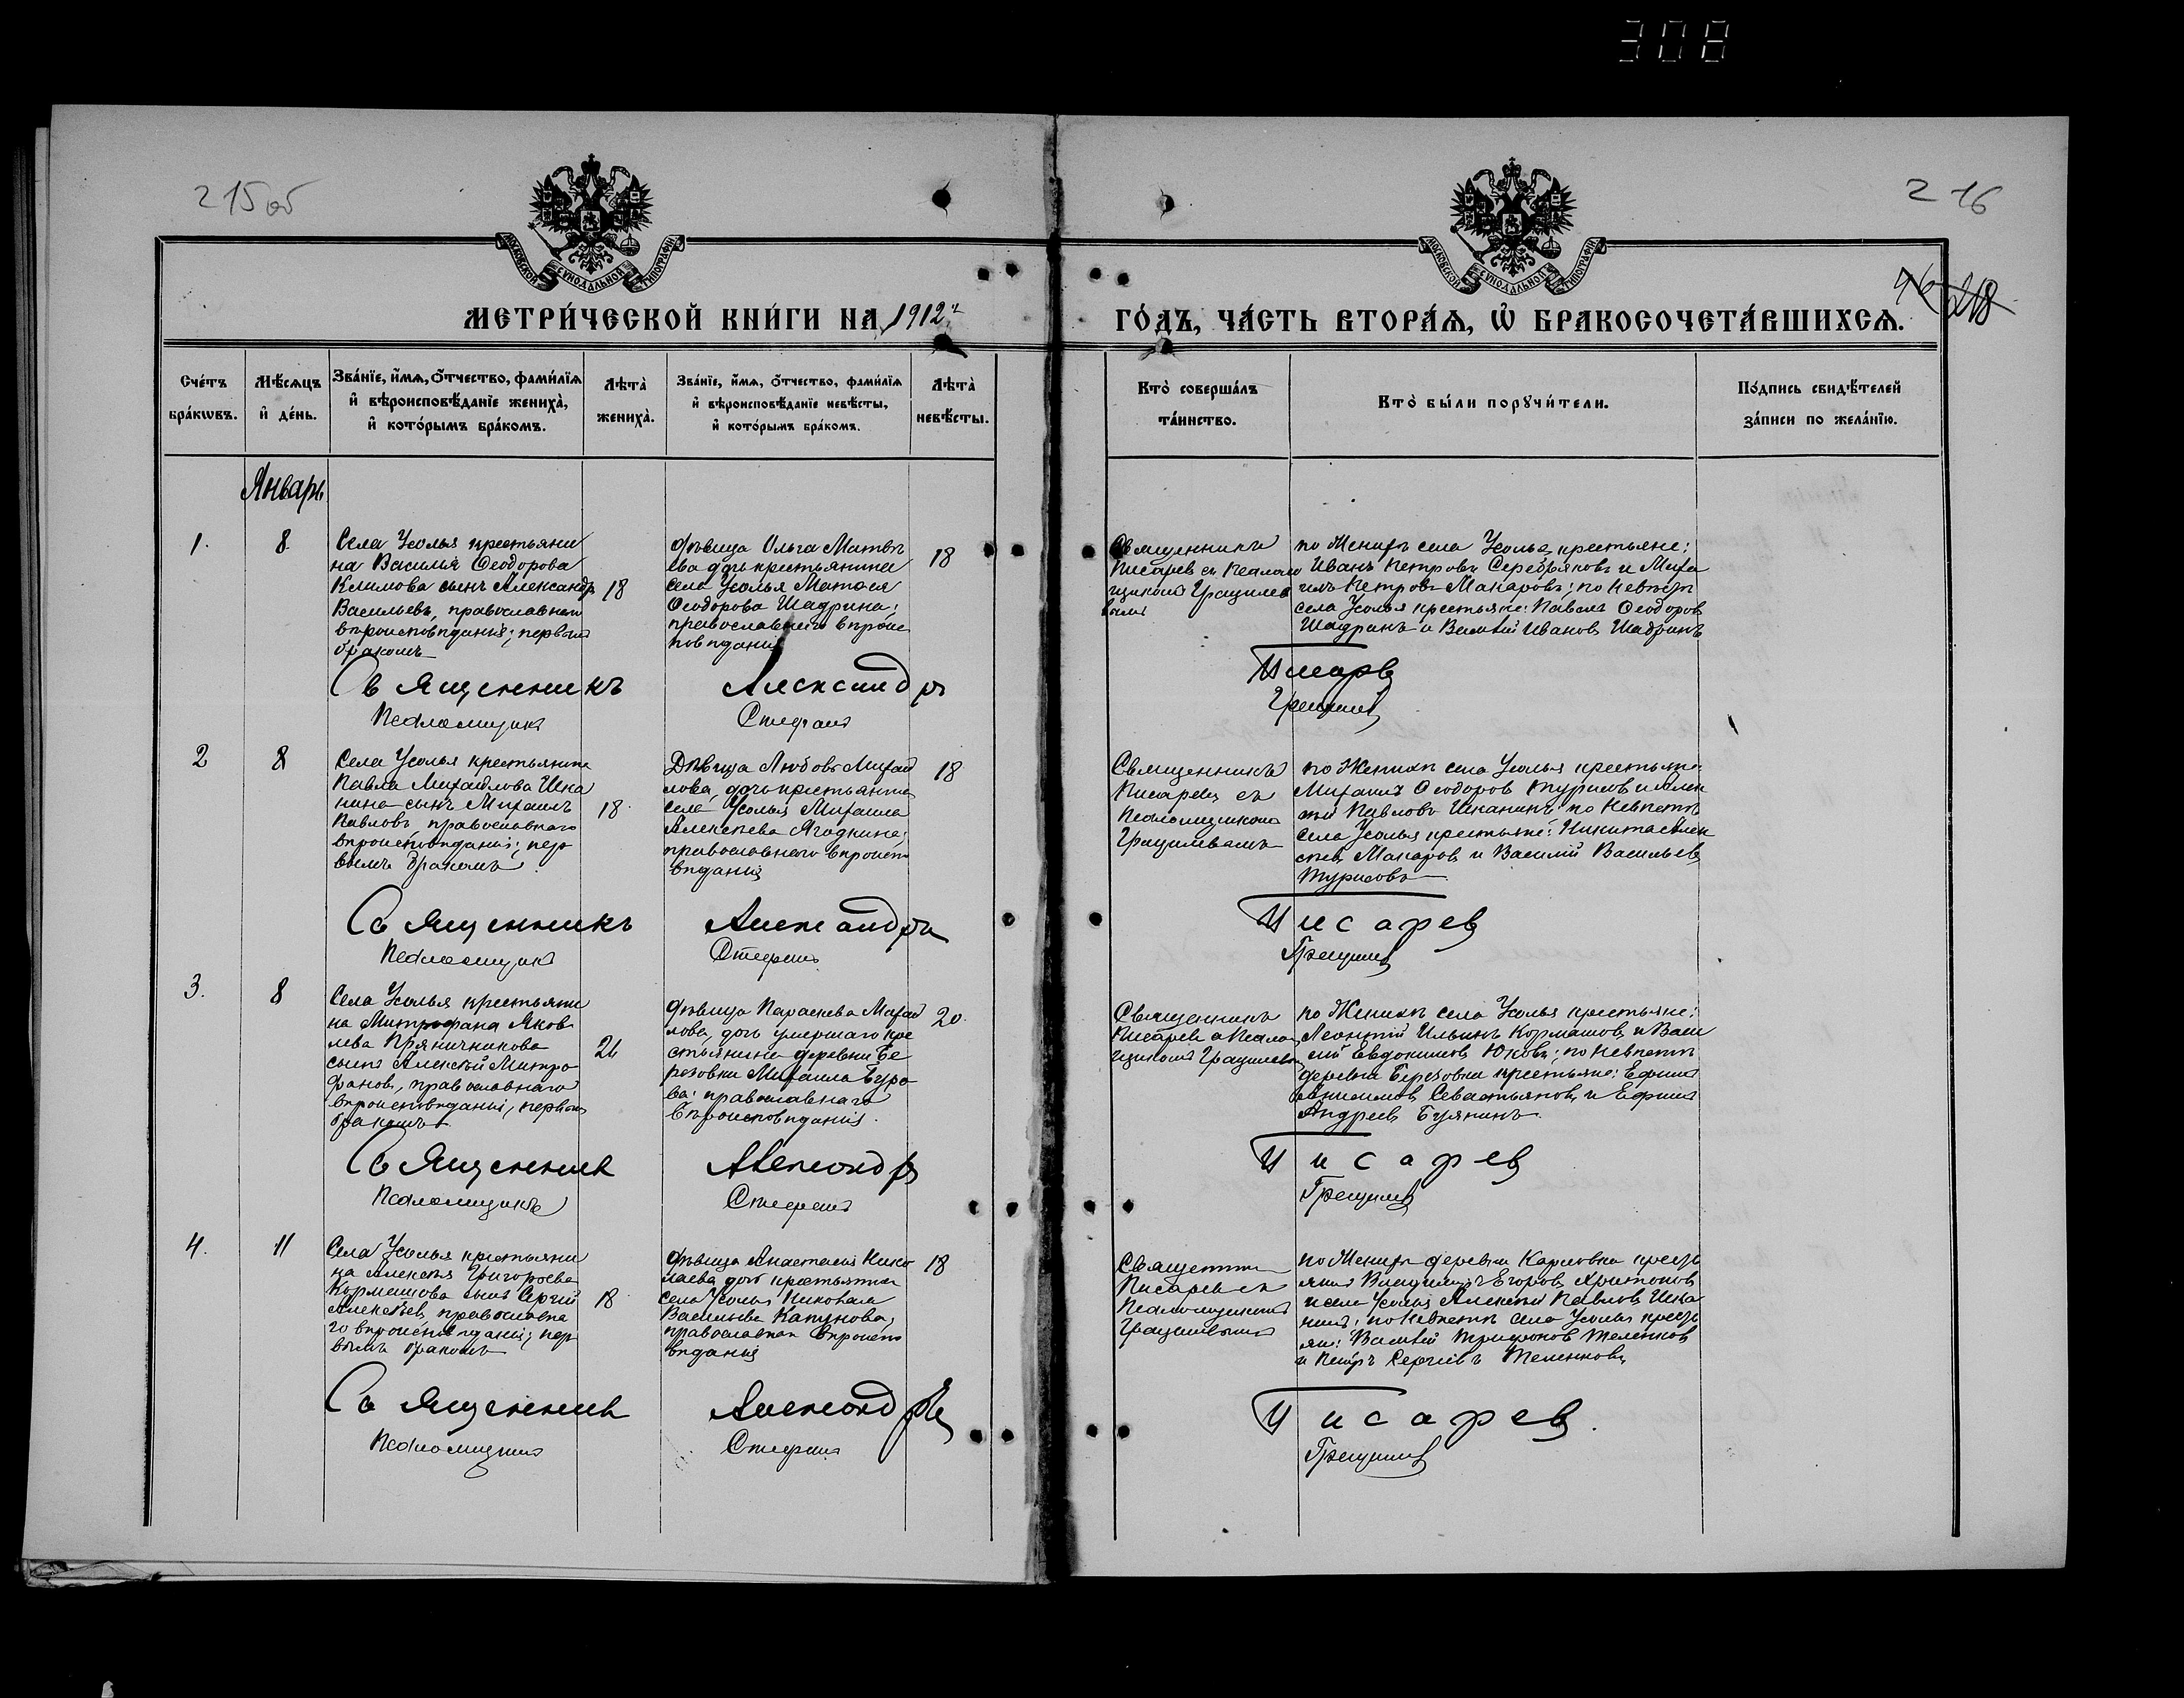 308
215об
216
МОСКОВСКОЙ СѴНОДАЛЬНОЙ ТИПОГРАФІИ
МОСКОВСКОЙ СѴНОДАЛЬНОЙ ТИПОГРАФІИ
218
МЕТРИ́ЧЕСКОЙ КНИ́ГИ НА 1912 г.
ГО́ДЪ, ЧА́СТЬ ВТОРА́Ѧ, Ѡ҆ БРАКОСОЧЕТА́ВШИХСѦ.
Сче́тъ бра́кѡвъ.
Мѣ́сѧцъ и҆ де́нь.
Зва́нїе, и҆́мѧ, ѻ҆́тчество, фами́лїѧ
и҆ вѣроисповѣ́данїе жениха̀,
и҆ кото́рымъ бра́комъ.
Лѣта̀ жениха̀.
Зва́нїе, и҆́мѧ, ѻ҆́тчество, фами́лїѧ
и҆ вѣроисповѣ́данїе невѣ́сты,
и҆ кото́рымъ бра́комъ.
Лѣта̀ невѣ́сты.
Кто̀ соверша́лъ
та́инство.
Кто̀ бы́ли порꙋчи́тели.
По́дпись свидѣ́телей
за́писи по жела́нїю.
Январь
1.
8.
Села Усолья крестьяни
на Василья Ѳеодорова
Климова сынъ Александръ
Васильевъ, православнаго
вѣроисповѣданія; первымъ
бракомъ
18
Дѣвица Ольга Матвѣ
ева дочь крестьянина
села Усолья Матвѣя
Ѳеодорова Шадрина;
православнаго вѣроис
повѣданія
18
Священникъ
Писаревъ съ Псалом
щикомъ Грацилев
ымъ
по Женихѣ села Усолья крестьяне:
Иванъ Петровъ Серебряковъ и Миха
илъ Петровъ Макаровъ; по Невѣстѣ
села Усолья крестьяне: Павелъ Ѳеодоров
Шадринъ и Василій Иванов Шадринъ
Священникъ Александръ Писаревъ
Псаломщикъ Стефанъ Грацилевъ
2
8
Села Усолья крестьянина
Павла Михайлова Шка
нина сынъ Михаилъ
Павловъ, православнаго
вѣроисповѣданія; пер
вымъ бракомъ.
18.
Дѣвица Любовь Михай
лова, дочь крестьянина
села Усолья Михаила
Алексѣева Ягодкина;
православнаго вѣроисп
вѣданія
18
Священникъ
Писаревъ съ
Псаломщикомъ
Грацилевымъ
по Женихѣ села Усолья крестьяне:
Михаилъ Ѳеодоров Турисов и Алек
сѣй Павловъ Шканинъ; по Невѣстѣ
села Усолья крестьяне: Никита Алек
сѣевъ Макаров и Василій Васильевъ
Турисовъ
Священникъ Александръ Писаревъ
Псаломщикъ Стефанъ Грацилевъ
3.
8
Села Усолья крестьяни
на Митрофана Яков
лева Пряничникова
сынъ Алексѣй Митро
фановъ, православнаго
вѣроисповѣданія, первымъ
бракомъ
Дѣвица Параскева Михай
лова, дочь умершаго кре
стьянина деревни Бе
резовки Михаила Буро
ва: православнаго
вѣроисповѣданія.
20.
Священникъ
Писаревъ съ Псалом
щикомъ Грацилевы
по Женихѣ села Усолья крестьяне:
Леонтій Ильинъ Кормашов, и Васи
лій Евдокимовъ Юковъ; по Невѣстѣ
деревни Березовки крестьяне: Ефимъ
Анисимовъ Севастьянов, и Ефимъ
Андреевъ Бузянинъ
Священникъ Александръ Писаревъ
Псаломщикъ Стефанъ Грацилевъ
4.
11
Села Усолья крестьяни
на Алексѣя Григорьева
Кормашова сынъ Сергій
Алексѣевъ, православна
го вѣроисповѣданія; пер
вымъ бракомъ
18.
Дѣвица Анастасія Нико
лаева дочь крестьянина
села Усолья Николая
Васильева Катунова,
православнаго вѣроиспо
вѣданія
18
Священник
Писаревъ съ
Псаломщикомъ
Грацилевымъ
по Женихѣ деревни Карповки крестьянинъ
Владиміръ Егоровъ Аритонов
и села Усолья Алексѣй Павловъ Шка
нинъ; по Невѣстѣ села Усолья крестья
не: Василій Трифонов Теленков
и Петръ Сергіевъ Теленковъ
Священник Александръ Писаревъ.
Псаломщикъ Стефанъ Грацилевъ